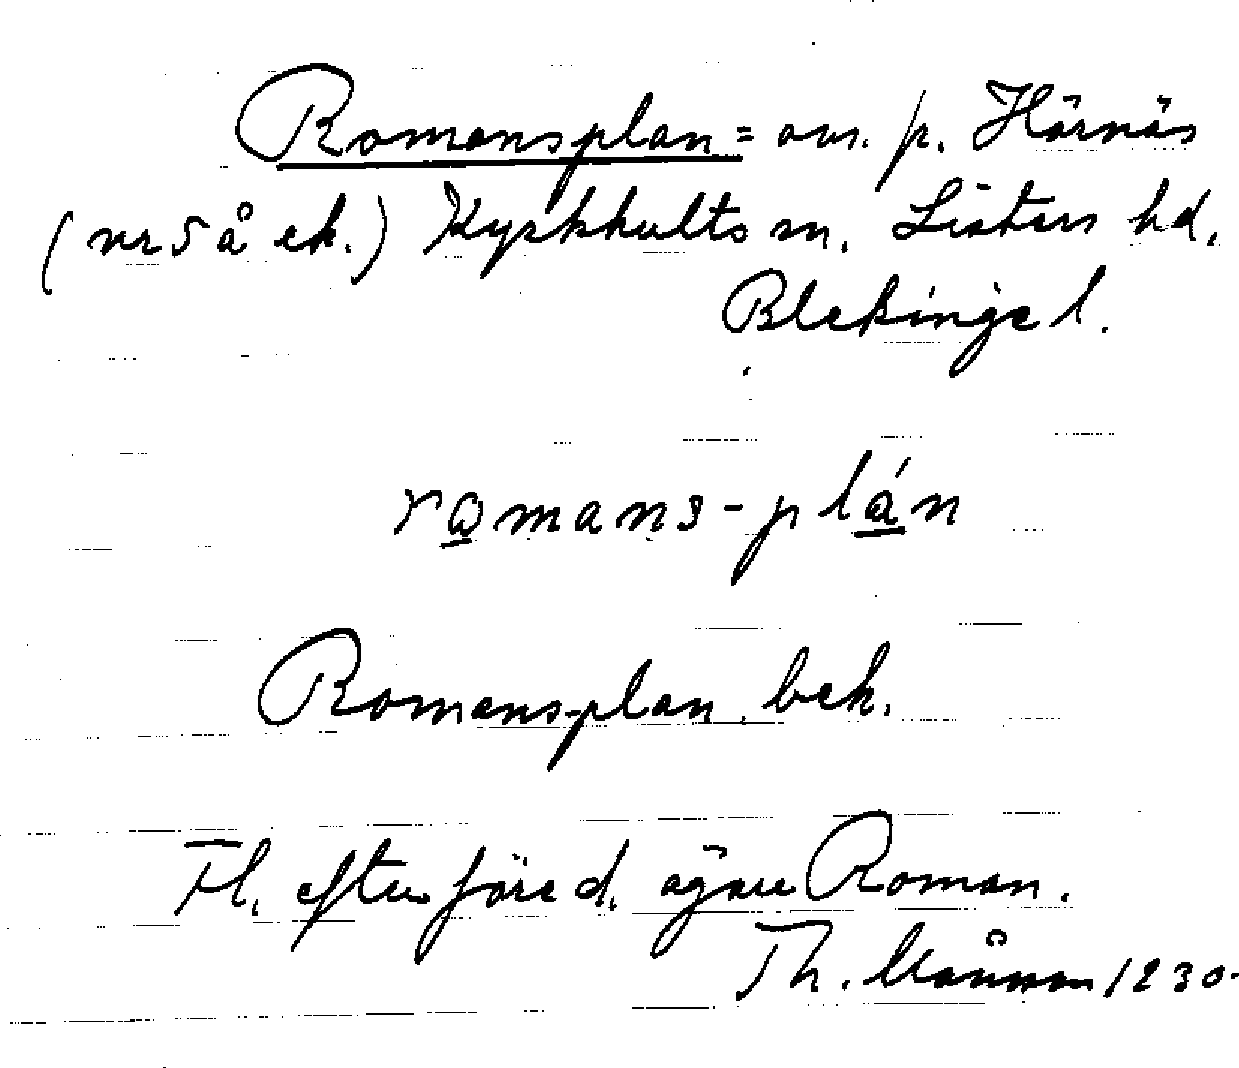 Romansplan = avs. p. Härnäs
(nr 5 å ek.) Kyrkhults sn. Listers hd,
Blekinge l.
romans-plán
Romansplan bek.
Tl. efter föred. ägare Roman.
Th. Månsson 1230.